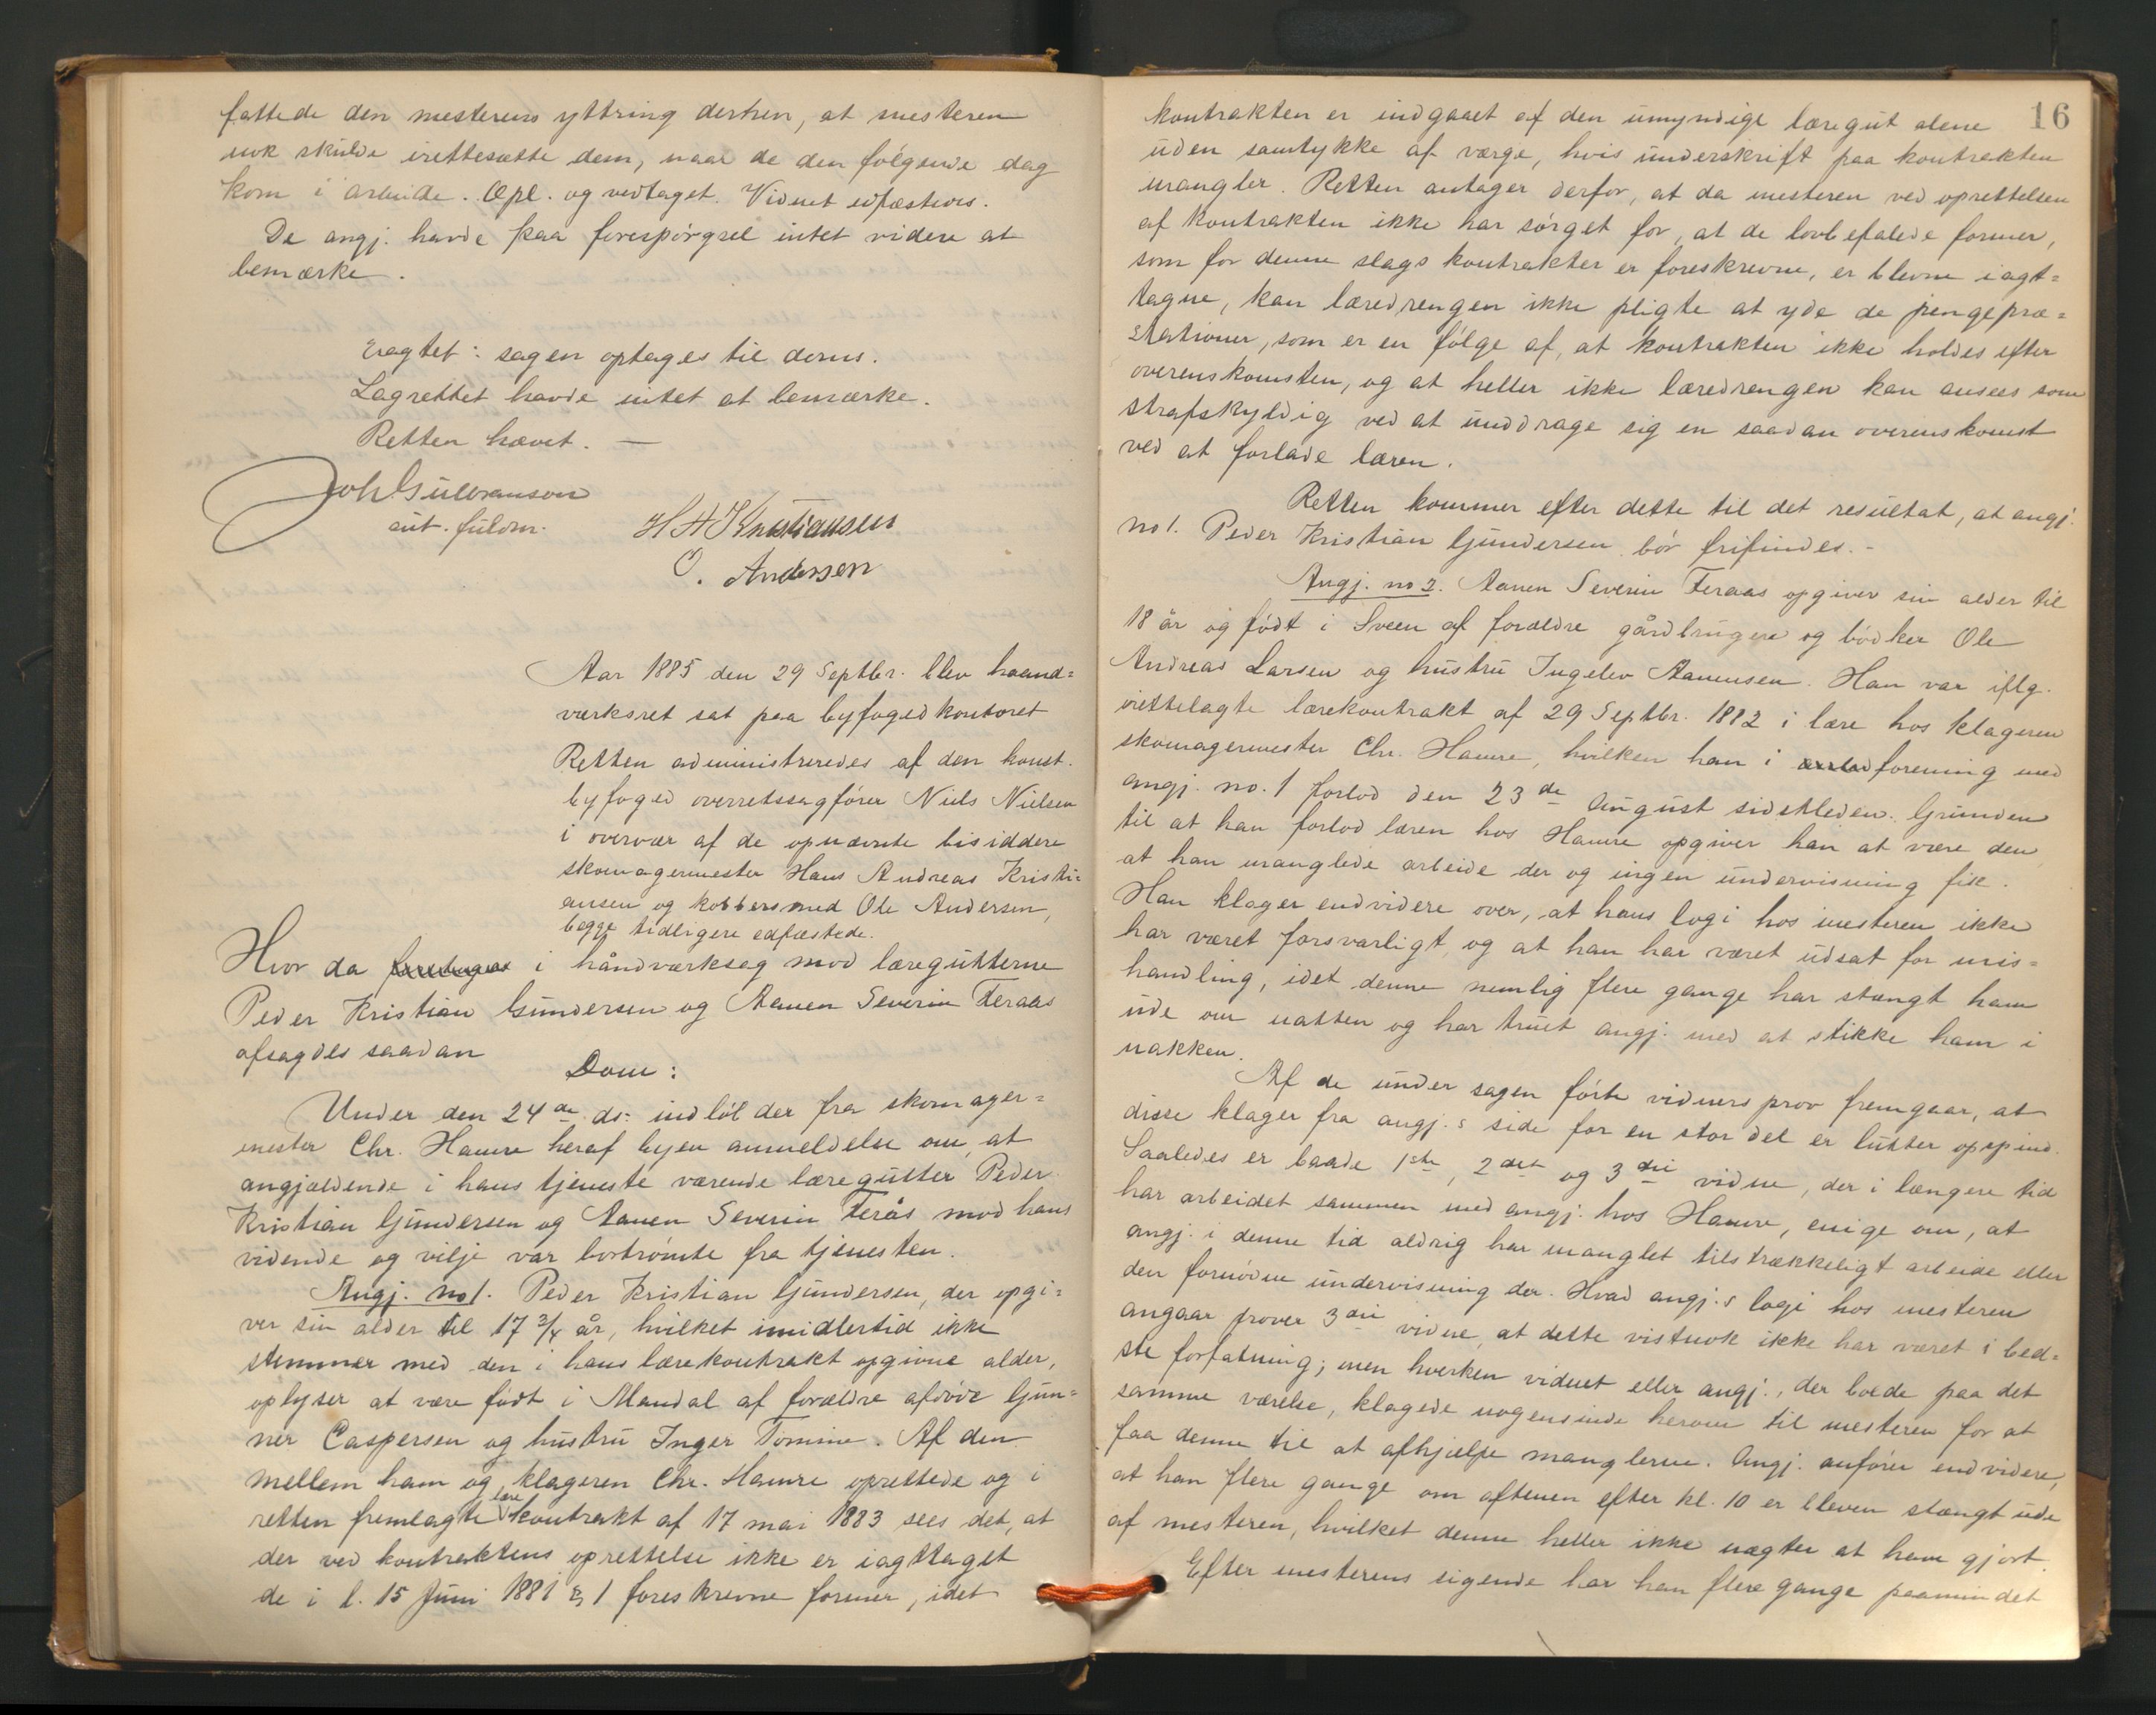 fattede den mesterens yttring derhen, at mesteren
nok skulde irettesætte dem, naar de den følgende dag
kom i arbeide. Opl. og vedtaget. Vidnet edfæstedes.
De angj. havde paa forespørgsel intet videre at
bemærke.
Eragtet: sagen optages til doms.
Lagrettet havde intet at bemærke.
Retten hævet. —
Joh Gulbranson
aut. fuldm.
H A Kristiansen
O. Andersen
Aar 1885 den 29 Septbr. blev haand=
værksret sat paa byfogedkontoret
Retten administreredes af den konst.
byfoged overretssagfører Niels Nielsen
i overvær af de opnævnte bisiddere
skomagermester Hans Andreas Kristi=
ansen og kobbersmed Ole Andersen,
begge tidligere edfæstede.
Hvor da foretages i håndværksag mod læregutterne
Peder Kristian Gundersen og Aanen Severin Feraas
afsagdes saadan
Dom:
Under den 24de ds: indløb der fra skomager=
mester Chr. Hamre heraf byen anmeldelse om, at
angjældende i hans tjeneste værende læregutter Peder
Kristian Gundersen og Aanen Severin Ferås mod hans
vidende og vilje var bortrømte fra tjenesten.
Angj. no 1. Peder Kristian Gundersen, der opgi=
ver sin alder til 17 3/4 år, hvilket imidlertid ikke
stemmer med den i hans lærekontrakt opgivne alder,
oplyser at være født i Mandal af forældre afdøde Gun=
ner Caspersen og hustru Inger Tomine. Af den
mellem ham og klageren Chr. Hamre oprettede og i
retten fremlagte lærekontrakt af 17 mai 1883 sees det, at
der ved kontraktens oprettelse ikke er iagttaget
de i l. 15 Juni 1881 § 1 foreskrevne former, idet
16
kontrakten er indgaaet af den umyndige læregut alene
uden samtykke af værge, hvis underskrift paa kontrakten
mangler. Retten antager derfor, at da mesteren ved oprettelsen
af kontrakten ikke har sørget for, at de lovbefalede former,
som for denne slags kontrakter er foreskrevne, er blevne iagt=
tagne, kan læredrengen ikke pligte at yde de pengepræ=
stationer, som er en følge af, at kontrakten ikke holdes efter
overenskomsten, og at heller ikke læredrengen kan ansees som
strafskyldig ved at unddrage sig en saadan overenskomst
ved at forlade læren.
Retten kommer efter dette til det resultat, at angj.
no 1. Peder Kristian Gundersen bør frifindes. -
Angj. no 2. Aanen Severin Feraas opgiver sin alder til
18 år og født i Sveen af forældre gårdbruger og bødker Ole
Andreas Larsen og hustru Ingelev Aanensen. Han var iflg.
irettelagte lærekontrakt af 29 Septbr. 1882 i lære hos klageren
skomagermester Chr. Hamre, hvilken han i forening med
angj. no. 1 forlod den 23de August sidstleden. Grunden
til at han forlod læren hos Hamre opgiver han at være den
at han manglede arbeide der og ingen undervisning fik.
Han klager endvidere over, at hans logi hos mesteren ikke
har været forsvarligt, og at han har været udsat for mis=
handling, idet denne nemlig flere gange har stængt ham
ude om natten og har truet angj. med at stikke ham i
nakken.
Af de under sagen førte vidners prov fremgaar, at
disse klager fra angj.s side for en stor del er lutter opspind.
Saaledes er baade 1ste, 2det og 3die vidne, der i længere tid
har arbeidet sammen med angj. hos Hamre, enige om, at
angj. i denne tid aldrig har manglet tilstrækkeligt arbeide eller
den fornødne undervisning der. Hvad angj.s logi hos mesteren
angaar prover 3die vidne, at dette vistnok ikke har været i bed=
ste forfatning; men hverken vidnet eller angj., der boede paa det
samme værelse, klagede nogensinde herom til mesteren for at
faa denne til at afhjælpe manglerne. Angj. anfører endvidere,
at han flere gange om aftenen efter kl. 10 er bleven stængt ude
af mesteren, hvilket denne heller ikke nægter at have gjort.
Efter mesterens sigende har han flere gange paamindet